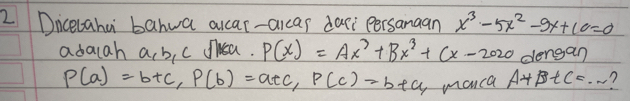 2 Diketahui bahwa akar-akar dari persamaan x³-5x²-9x+10=0
adalah a, b, c Jika. P(x) = Ax³+Bx²+Cx-2020 dengan
P(a) = b+c, P(b) = a+c, P(c) = b+a, maka A+B+C=...?